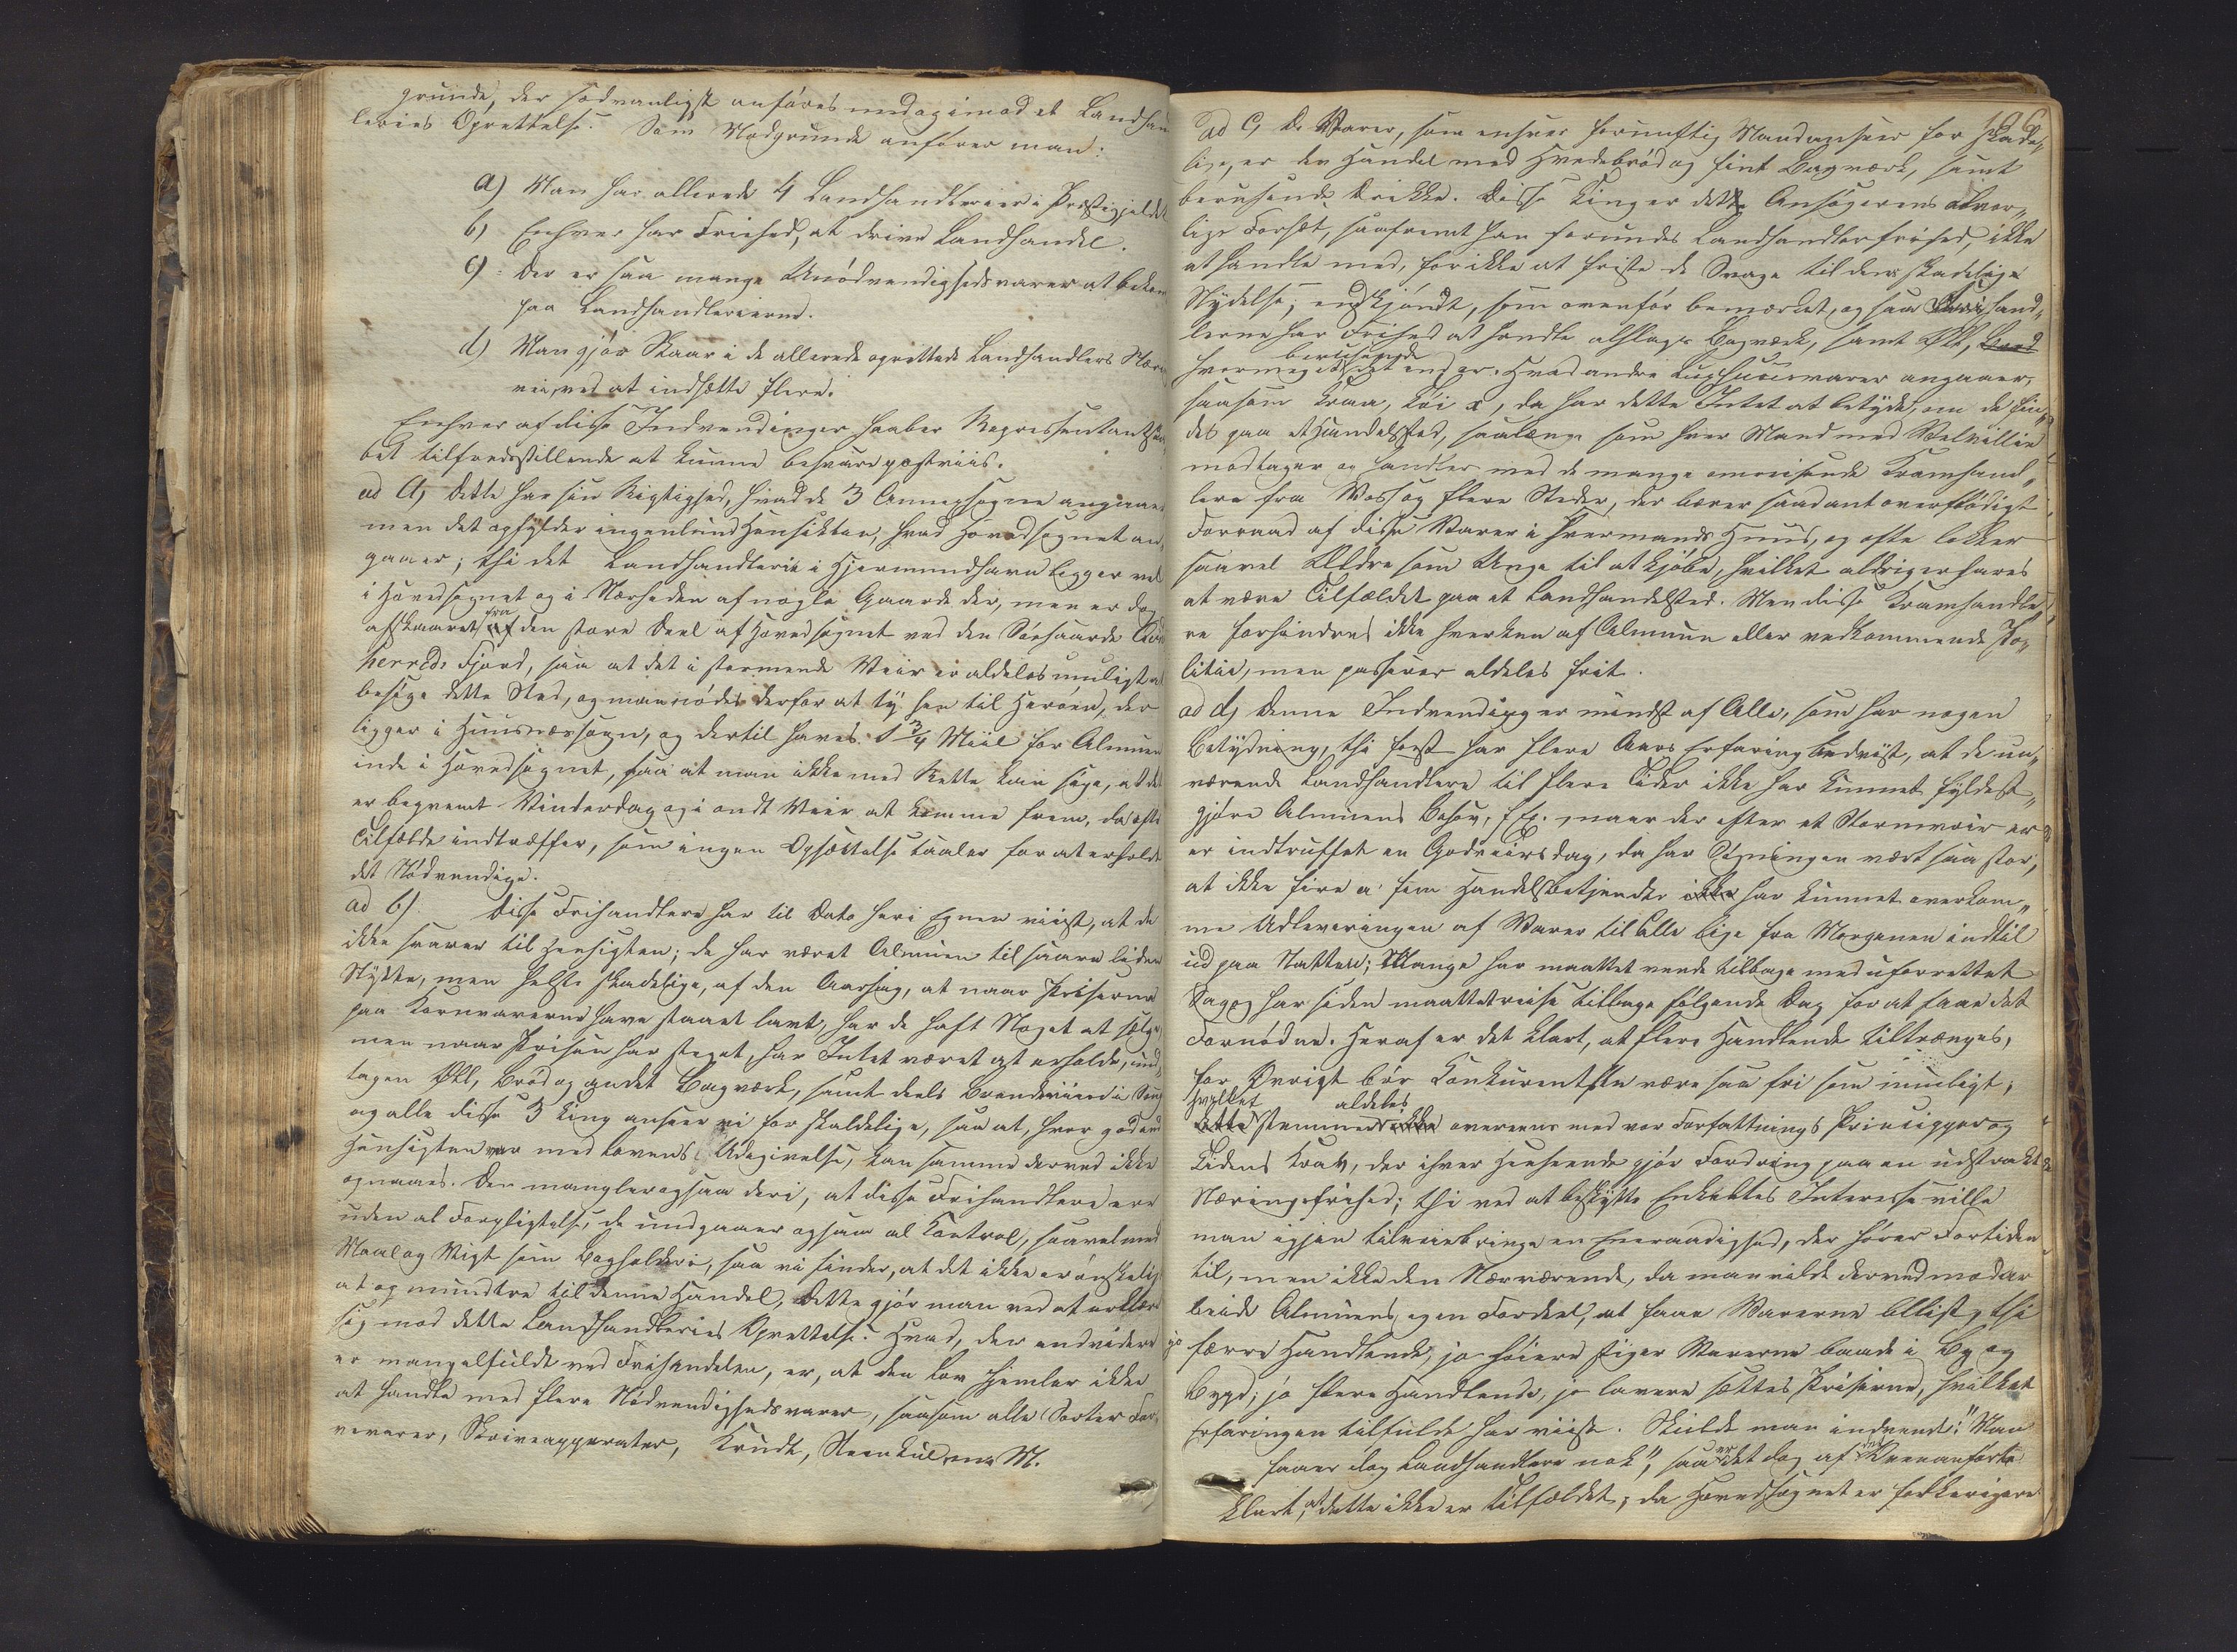 grunde, der sædvanligst anføres imod et Landhan
leries Oprettelse. Som Modgrunde anfører man:
a) Man har allerede 4 Landhandlerier i Præstegjeldet
b) Enhver har Friehed, at drive Landhandel.
c) Der er saa mange Unødvendighedsvarer at bekom
paa Landhandlerierne.
d) Man gjør Skaar i de allerede oprettede Landhandlers Nær
vei, ved at indsætte flere.
Enhver af disse Indvendinger haaber Repræsentantska
bet tilfredsstillende at kunne besvare postviis.
ad a, dette har sin Rigtighed, hvad de 3 Annexsogne angaaer
men det opfylder ingenlunde Hensikten, hvad Hovedsognet an
gaaer; thi det Landhandlerie i Hjermundhavn ligger vel
i Hovedsognet og i Nærheden af nogle Gaarde der, men er dog
afskaaret fra den store Deel af Hovedsognet ved den Søe
herreds Fjord, saa at det i stormende Veir er aldeles umuligt at
besøge dette Sted, og man nødes derfor at ty hen til Herøen, der
ligger i Huusnæssogn, og dertil haves 1 3/4 Miil for Almuen
inde i Hovedsognet, saa at man ikke med Rette kan sige, at det
er beqvemt Vinterdag og i ondt Veir at komme frem, da ofte
Tilfælde indtræffer, som ingen Opsættelse taaler for at erholde
det Nødvendige.
ad b) Disse Frihandlere har til Dato heri Egnen viist, at de
ikke svarer til Hensigten; de har været Almuen til saare liden
Nytte, men helst skadelige, af den Aarsag, at naar Priserne
paa Kornvarerne have staaet lavt, har de haft Noget at sælge,
men naar Prisen har steget, har Intet været at erholde, und
tagen Øll, Brød og andet Bagværk, samt deels Brendeviin i Smug
og alle disse 3 Ting anseer vi for skadelige, saa at, hvor god end
Hensigten var med Lovens Udgivelse, kan samme derved ikke
opnaaes. Der mangler ogsaa deri, at disse Frihandlere ere
uden al Forpligtelse, de undgaaer ogsaa al Kontrol, saavel med
Maal og Vigt som Bogholderi, saa vi finder, at det ikke er ønskeligt
at opmuntre til denne Handel, dette gjør man ved at erklære
sig mod dette Landhandleries Oprettelse. Hvad, der endvidere
er mangelfuldt ved Frihandelen, er, at den Lov hjemler ikke
at handle med flere Nødvendighedsvarer, saasom alle Sorter Far
vevarer, Skriveapparater, Krudt, Steenkul m. M.
ad c, De Varer, som enhver fornuftig Mand anseer for skade„
lige, er den Handel med Hvedebrød og fint Bagværk, samt
berusende Drikke. Disse Ting er dette Ansøgerens alvor„
lige Forsæt, saafremt han forundes Landhandlerfrihed, ikke
at handle med, for ikke at friste de Svage til den skadelige
Nydelse; endskjøndt, som ovenfor bemærket, ogsaa Frihand„
lerne har Frihed at handle alslags Bagværk, samt Øll,
hvormeget berusende det end er. Hvad andre Luxusvarer angaaer,
saasom Kram, Tøi &, da har dette Intet at betyde, om de fin„
des paa et Handelsted, saalænge som hver Mand med Velvillie
modtager og handler med de mange omreisende Kramhand„
lere fra Voss og flere Steder, der bærer saadant overflødigt
Forraad af disse Varer i hvermands Huus, og ofte lokker
saavel Eldre som Unge til at kjøbe, hvilket aldrig erfares
at være Tilfældet paa et Landhandelsted. Men disse Kramhandle
re forhindres ikke hverken af Almuen eller vedkommende Po„
litie, men passerer aldeles frit.
ad d, Denne Indvending er mindst af Alle, som har nogen
Betydning, thi først har flere Aars Erfaring beviist, at de nu„
værende Landhandlere til flere Tider ikke har kunnet fyldest„
gjøre Almuens Behov, f Ex. naar der efter et Stormveir er
er indtruffet en Godveirsdag, da har Søgningen vært saa stor,
at ikke fire a' fem Handelsbetjendte ikke har kunnet overkom„
me Udleveringen af Varer til Alle lige fra Morgenen indtil
ud paa Natten; Mange har maattet vende tilbage med uforrettet
Sag og har siden maattet reise tilbage følgende Dag for at faae det
Fornødne. Heraf er det klart, at flere Handlende tiltrænges,
for Øvrigt bør Konkurentsen være saa fri som muligt,
hvilket aldeles
dette stemmer ikke overeens med vor Forfatnings Principper og
Tidens Krav, der i hver Henseende gjør Fordring paa en udstrakt
Næringsfrihed; thi ved at beskytte Enkeltes Interesse ville
man igjen tilveiebringe en Eneraadighed, der hører Fortiden
til, men ikke den Nærværende, da man vilde derved modar
beide Almuens egen Fordeel, at faae Varerne billigst, thi
jo færre Handlende, jo høiere stiger Varerne baade i By og
Bygd, jo flere Handlende, jo lavere sættes Priserne, hvilket
Erfaringen tilfulde har viist. Skulde man indvende: "Man
haaver dog Landhandlere nok", saa er det dog af det Ovenanførte
klart, at dette ikke er Tilfældet, da Hovedsognet er folkerigere